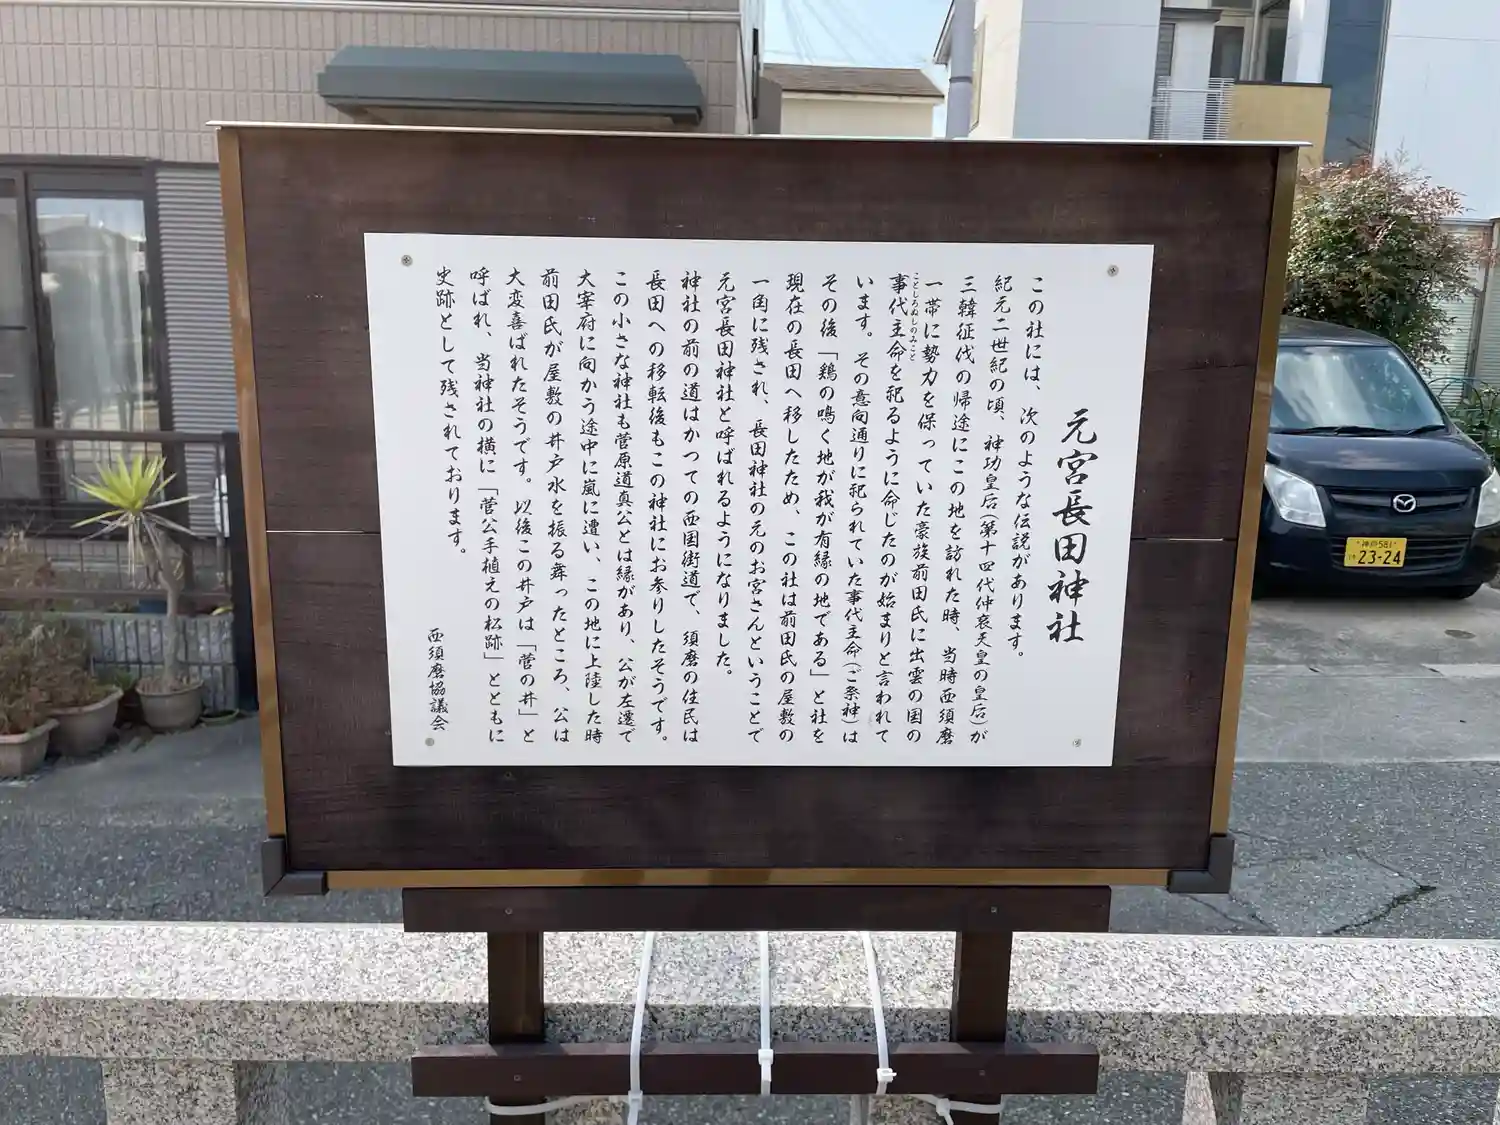 元宮長田神社
この社には、次のような伝説があります。
紀元二世紀の頃、神功皇后(第十四代仲哀天皇の皇后)が
三韓征伐の帰途にこの地を訪れた時、当時西須磨
一帯に勢力を保っていた豪族前田氏に出雲の国の
ことしろぬしのみこと
事代主命を祀るように命じたのが始まりと言われて
います。その意向通りに祀られていた事代主命(ご祭神)は
その後「鶏の鳴く地が我が有縁の地である」と社を
現在の長田へ移したため、この社は前田氏の屋敷の
一角に残され、長田神社の元のお宮さんということで
元宮長田神社と呼ばれるようになりました。
神社の前の道はかつての西国街道で、須磨の住民は
長田への移転後もこの神社にお参りしたそうです。
この小さな神社も菅原道真公とは縁があり、公が左遷で
大宰府に向かう途中に嵐に遭い、この地に上陸した時
前田氏が屋敷の井戸水を振る舞ったところ、公は
大変喜ばれたそうです。以後この井戸は「菅の井」と
呼ばれ、当神社の横に「菅公手植えの松跡」とともに
史跡として残されております。
西須磨協議会
神戸 581
23-24